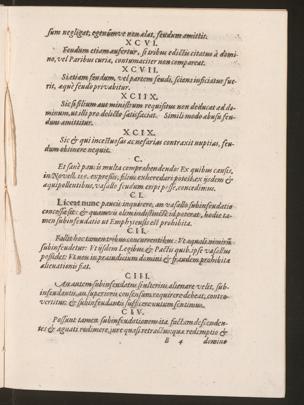 sum negligat, egenumve non alat, feudum amittit.
XCVI.
Feudum etiam aufertur, si tribus edictis citatus à domi-
no, vel Paribus curiæ, contumaciter non compareat.
XCVII.
Si etiam feudum, vel partem feudi, sciens inficiatus fue-
rit, æquè feudo privabitur.
XCIIX.
Sic si filium aut ministrum requisitus non deducat ad do-
minum, ut illi pro delicto satisfaciat. Simili modo abusu feu-
dum amittitur.
XCIX.
Sic & qui incestuosas ac nefarias contraxit nuptias, feu-
dum obtinere nequit.
C.
Et sanè paucis multa comprehendendo: Ex quibus causis,
in Novell. 115. expressis, filius exheredari potest: ex ijsdem &
æquipollentibus, vasallo feudum eripi posse, concedimus.
CI.
Liceat nunc paucis inquirere, an vasallo subinfeudatio
concessa sit: & quamvis olim indistinctè id poterat, hodie ta-
men subinfeudatio ut Emphyteusis est prohibita.
CII.
Factis hoc tamen tribus concurrentibus: Ut agnatis
subinfeudetur: Ut ijsdem Legibus & Pactis quib. ipse vasallus
possidet: Ut non in præiudicium domini & fraudem prohibitæ
alienationis fiat.
CIII.
An autem subinfeudatus si ulterius alienare velit, sub-
infeudantis, an superioris consensum requirere debeat, contro-
vertitur: & subinfeudantis sufficere nuntium sentimus.
CIV.
Possunt tamen subinfeudationem ita factam descenden-
tes & agnati redimere, jure quasi retractus: quæ redemptio à
B 4 domino